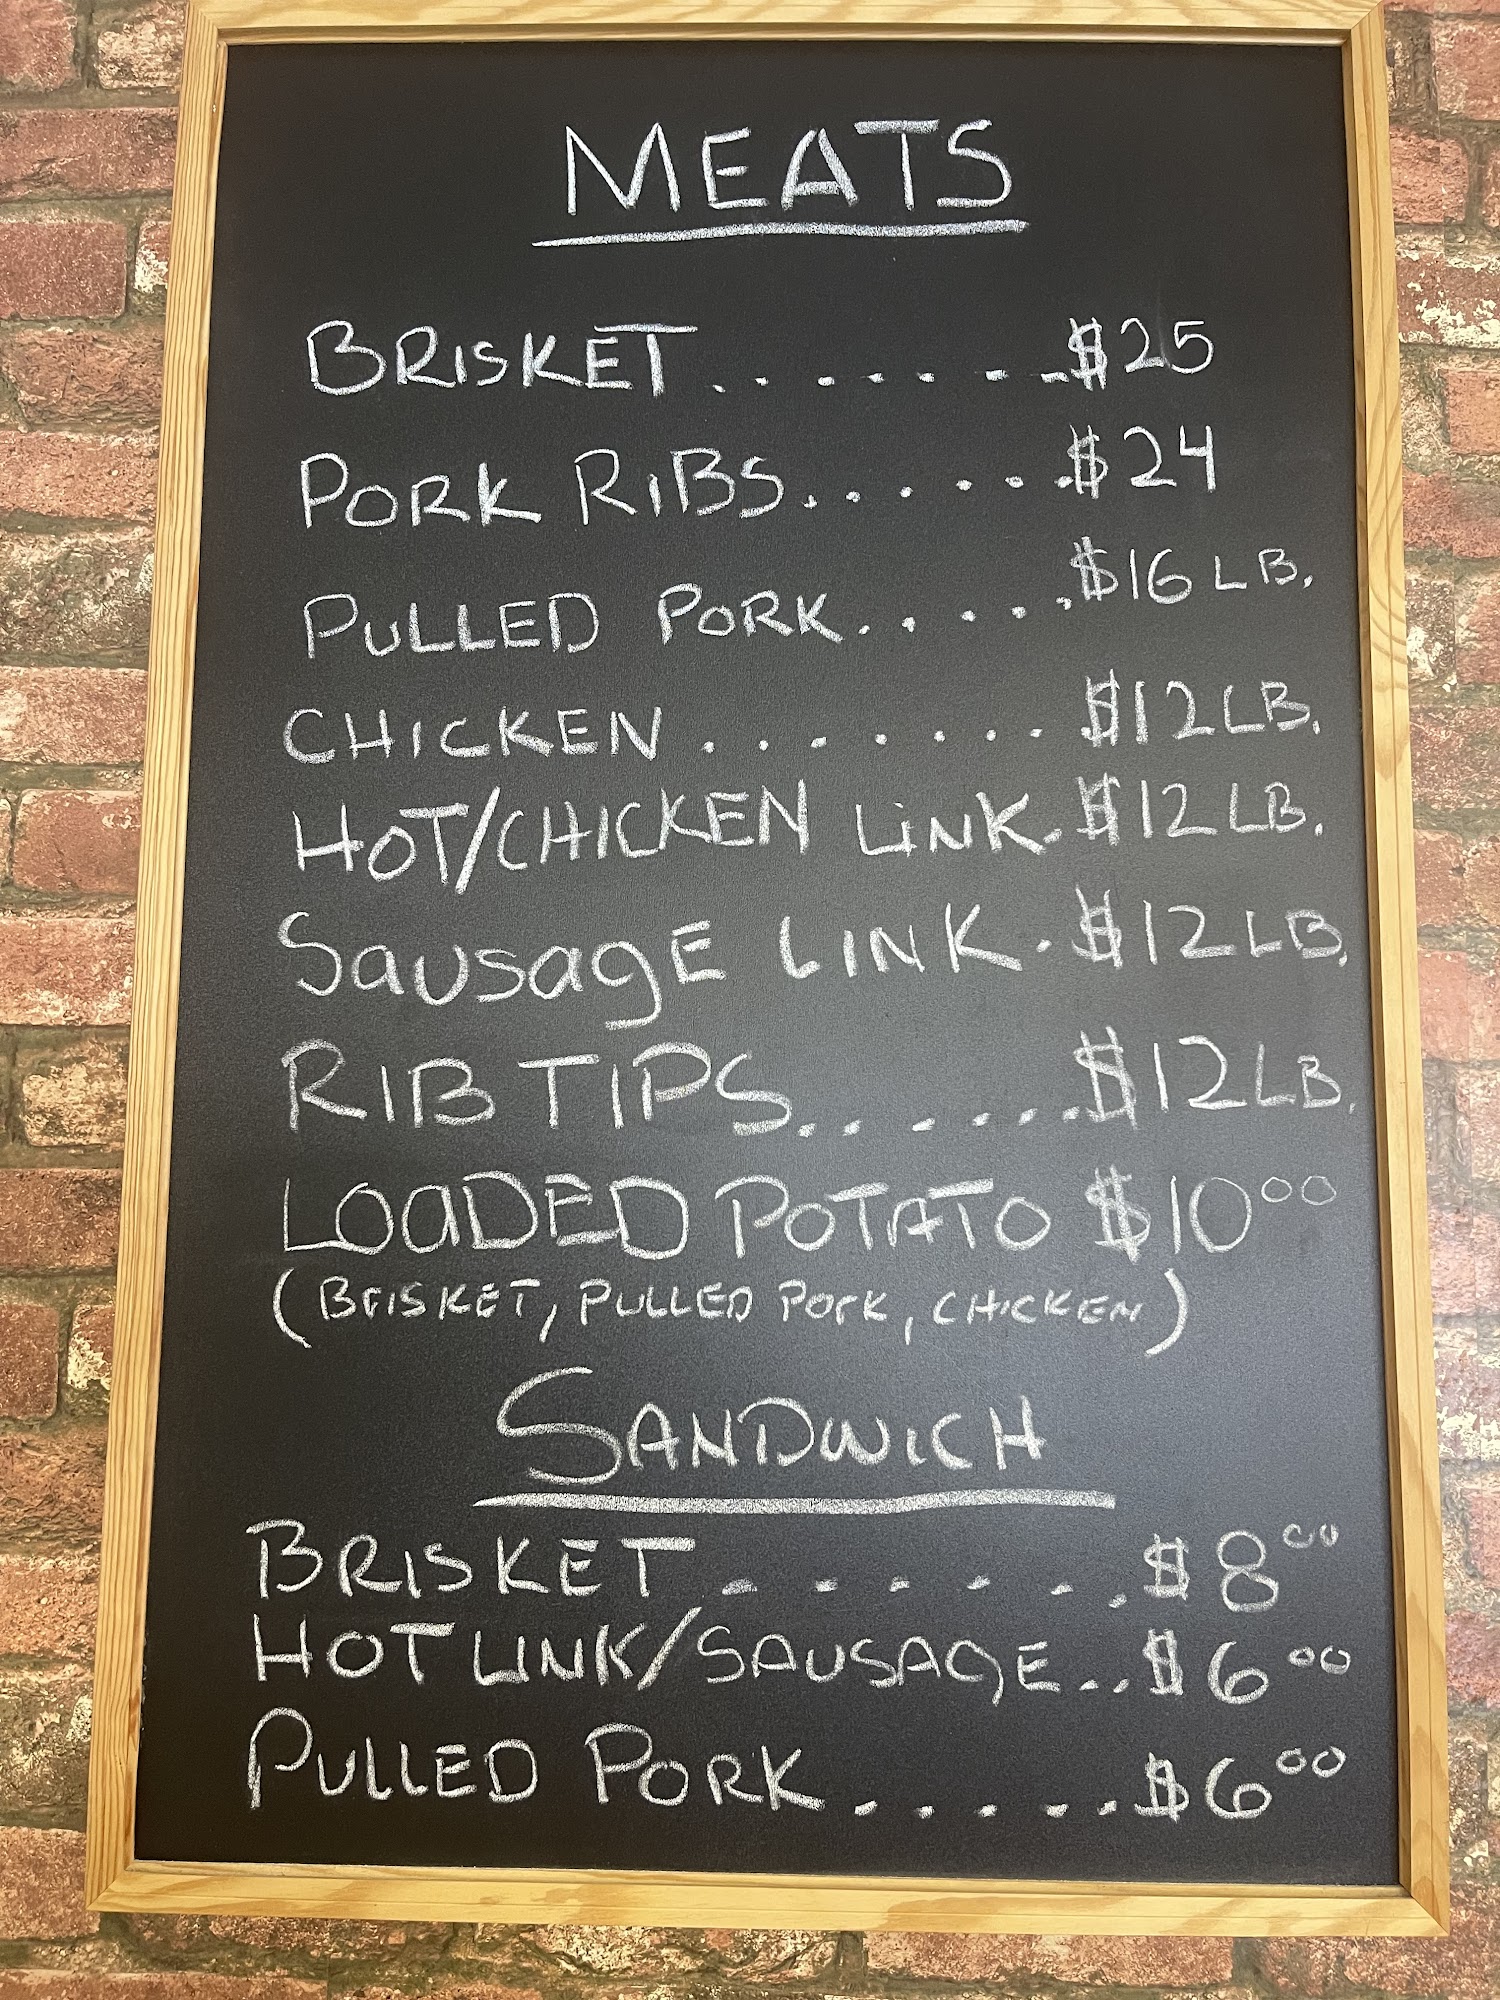 MEATS
BRISKET........$25
PORK RIBS......$24
PULLED PORK.....$16 LB.
CHICKEN.......$12 LB.
HOT/CHICKEN LINK.$12 LB.
SAUSAGE LINK.$12 LB.
RIB TIPS.......$12 LB.
LOADED POTATO $10⁰⁰
(BRISKET, PULLED PORK, CHICKEN)
SANDWICH
BRISKET......$8⁰⁰
HOT LINK/SAUSAGE..$6⁰⁰
PULLED PORK.....$6⁰⁰